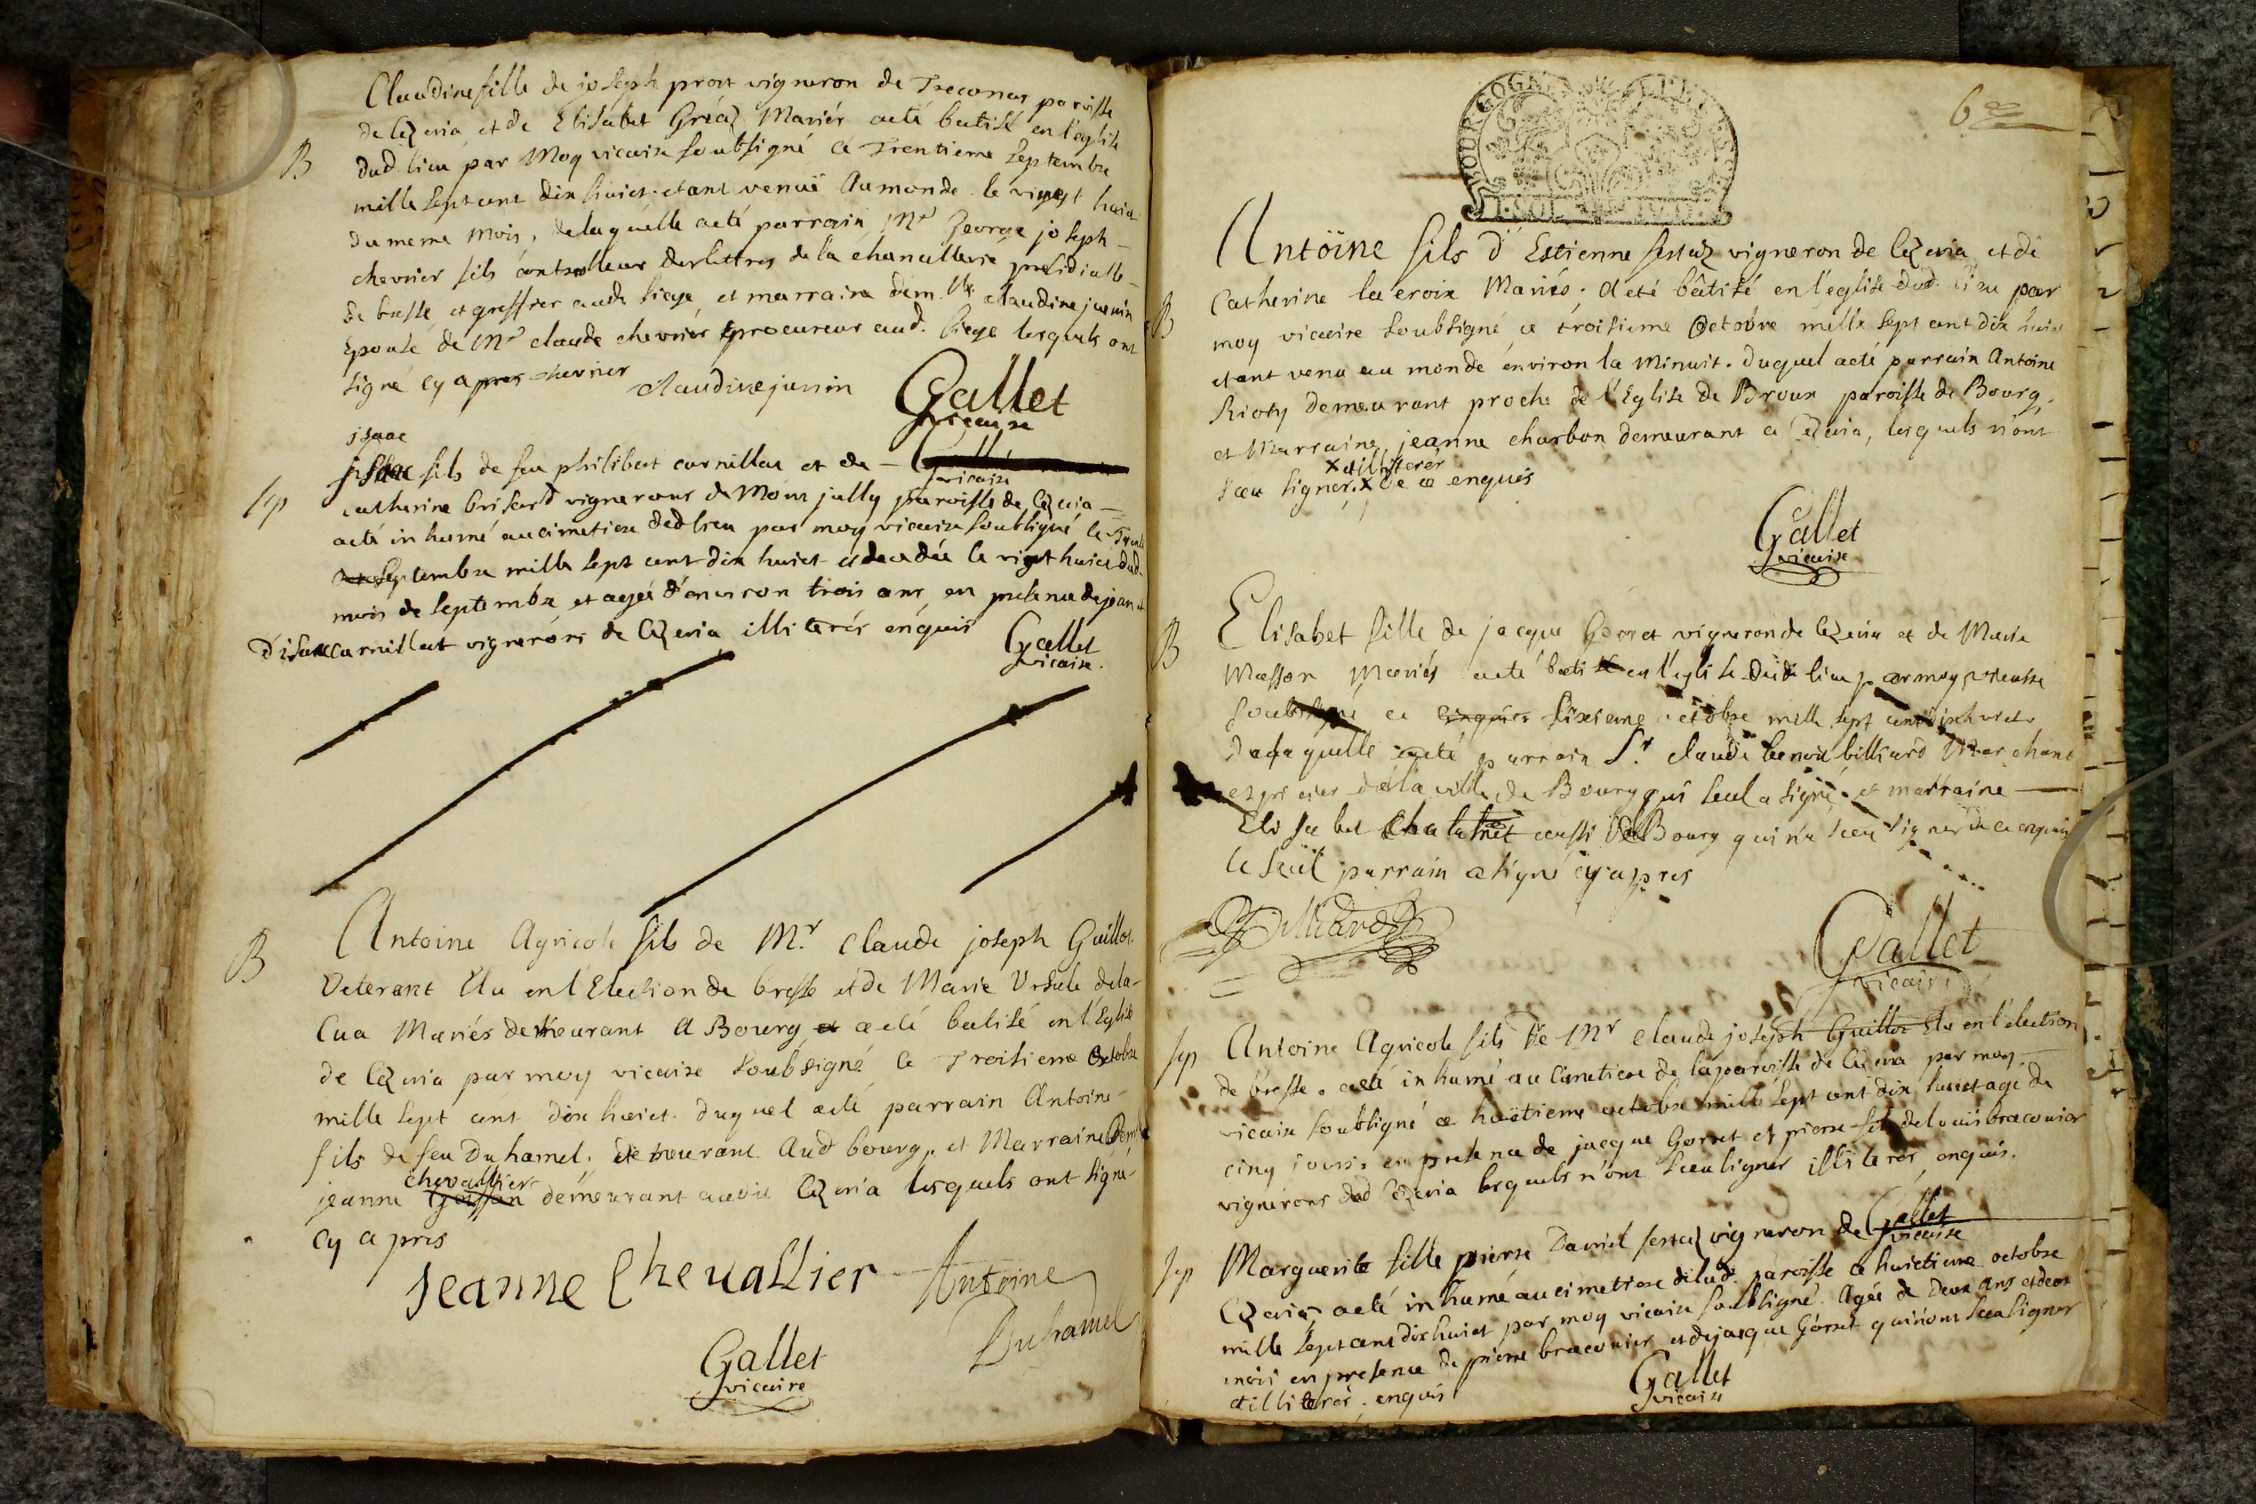 Claudine fille de joseph prost vigneron de Treconas paroisse
de Cezeria et de Elisabet Gréaz Mariés aeté batisé en l'eglise
B
dud. lieu par Moy vicaire soubsigné ce Trentieme septembre
mille sept cent dix huict. etant venuë au monde le vingt huict
du meme mois, delaquelle aeté parrain Mr George joseph
chevrier fils controlleur des lettres de la chancellerie presidialle
de bresse, et greffier aude siege, et marraine dem.lle claudine junin
Epouse de Mr claude chevrier procureur aud. siege lesquels ont
signé cy apres chevrier
claudine junin
Gallet
vicaire
jsaac
fils de feu philibert curnillon et de
vicaire
Sep
catherine brisard vignerons de Mont jully paroisse de Cezeria
aeté inhumé au cimetiere dud lieu par moy vicaire soubsigné le Trente
septembre mille sept cent dix huict et decedée le vingt huict dud.
mois de septembre et agée d'environ trois ans, en presence de jean et
d'isaac curnillat vignerons de Cezeria illiterés enquis
Gallet
vicaire.
B
Antoine Agricole fils de Mr. Claude joseph Guillot.
Veterant Elu en l'Election de bresse et de Marie Ursule dela-
Cua Mariés demeurant A Bourg aeté batisé en l'Eglise
de Cezeria par moy vicaire soubsigné Ce Troisieme Octobre
mille sept cent dix huict. duquel aeté parrain Antoine
fils de feu Duhamel. demeurant Aud bourg, et Marraine Demlle
chevallier
jeanne demeurant audit Cezeria lesquels ont signé
cy apres
Jeanne Chevallier
Antoine
Duhamel
Gallet
vicaire
6
BOURGOGNE
Antoine fils d'Estienne festaz vigneron de Cezeria et de
B
Catherine lacroix Mariés; A eté bâtisé en l'eglise dud. lieu par
moy vicaire soubsigné ce troisieme Octobre mille sept cent dix huict
etant venu au monde environ la Minuit. duquel aeté parrain Antoine
Rioty demeurant proche de l'Eglise de Broux paroisse de Bourg,
et Marraine jeanne charbon demeurant a Cezeria, lesquels n'ont
x et illiterés
sceu signer. x de ce enquis
Gallet
vicaire
B
Elisabet fille de jacque Gorret vigneron de Cezeria et de Marie
Masson Mariés aeté batisé en l'eglise dud. lieu par moy vicaire
soubsigné ce sixieme octobre mille sept cent dix huict
de laquelle aeté parrain Sr. claude benoit billiard Marchant
epicier dela ville de Bourg qui seul a signé et marraine
Elisabet aussi de Bourg qui n'a sceu signer de ce enquis
le seul parrain a signé cy apres
Billiard
Gallet
vicaire
Sep
Antoine Agricole fils de Mr claude joseph Guillot Elu en l'election
de bresse. aeté inhumé au Cimetiere de la paroisse de Cezeria par moy
vicaire soubsigné ce huictieme octobre mille sept cent dix huict agé de
cinq jours. en presence de jacque Gorret et pierre fils de louis braconier
vignerons dud Cezeria lesquels n'ont sceu signer illiterés enquis.
Gallet
vicaire
Sep
Marguerite fille pierre Daniel festaz vigneron de
Cezeria, aeté inhumé au cimetiere de lad. paroisse ce huictieme octobre
mille sept cent dix huict par moy vicaire soubsigné. Agée de Deux Ans et deux
mois en presence de pierre braconier et de jacque Gorret qui n'ont sceu signer
et illiterés. enquis
Gallet
vicaire